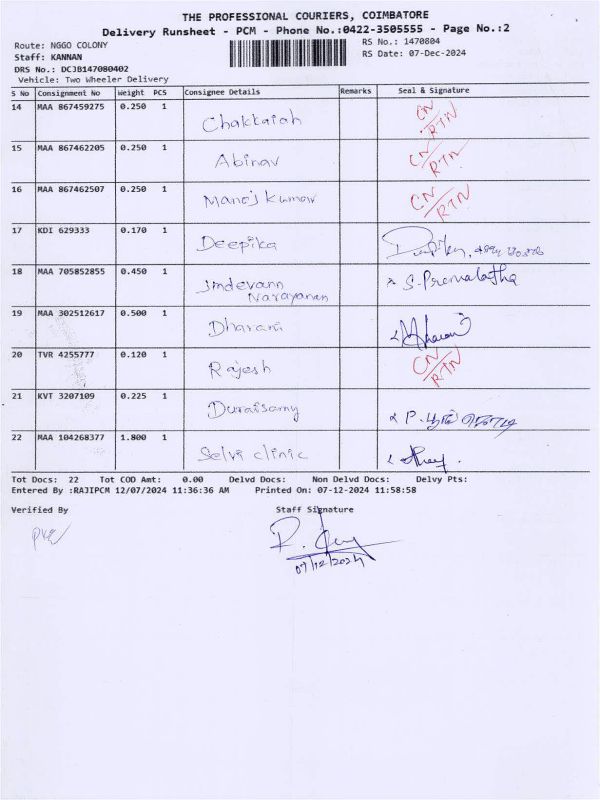 THE PROFESSIONAL COURIERS, COIMBATORE
Delivery Runsheet - PCM - Phone No.:0422-3505555 - Page No.:2
Route: NGGO COLONY
RS No.: 1470804
Staff: KANNAN
RS Date: 07-Dec-2024
DRS No.: DCJB147080402
Vehicle: Two Wheeler Delivery
S No Consignment No Weight PCS Consignee Details Remarks Seal & Signature
14 MAA 867459275 0.250 1 Chakkaiah CN/RTN
15 MAA 867462205 0.250 1 Abinav CN/RTN
16 MAA 867462507 0.250 1 Manoj Kumar CN/RTN
17 KDI 629333 0.170 1 Deepika
18 MAA 705852855 0.450 1 Narayanan S. Premalatha
19 MAA 302512617 0.500 1 Dharani
20 TVR 4255777 0.120 1 Rajesh CN/RTN
21 KVT 3207109 0.225 1 Duraisamy P.
22 MAA 104268377 1.800 1 Selvi clinic
Tot Docs: 22 Tot COD Amt: 0.00 Delvd Docs: Non Delvd Docs: Delvy Pts:
Entered By :RAJIPCM 12/07/2024 11:36:36 AM Printed On: 07-12-2024 11:58:58
Verified By Staff Signature
07/12/2024